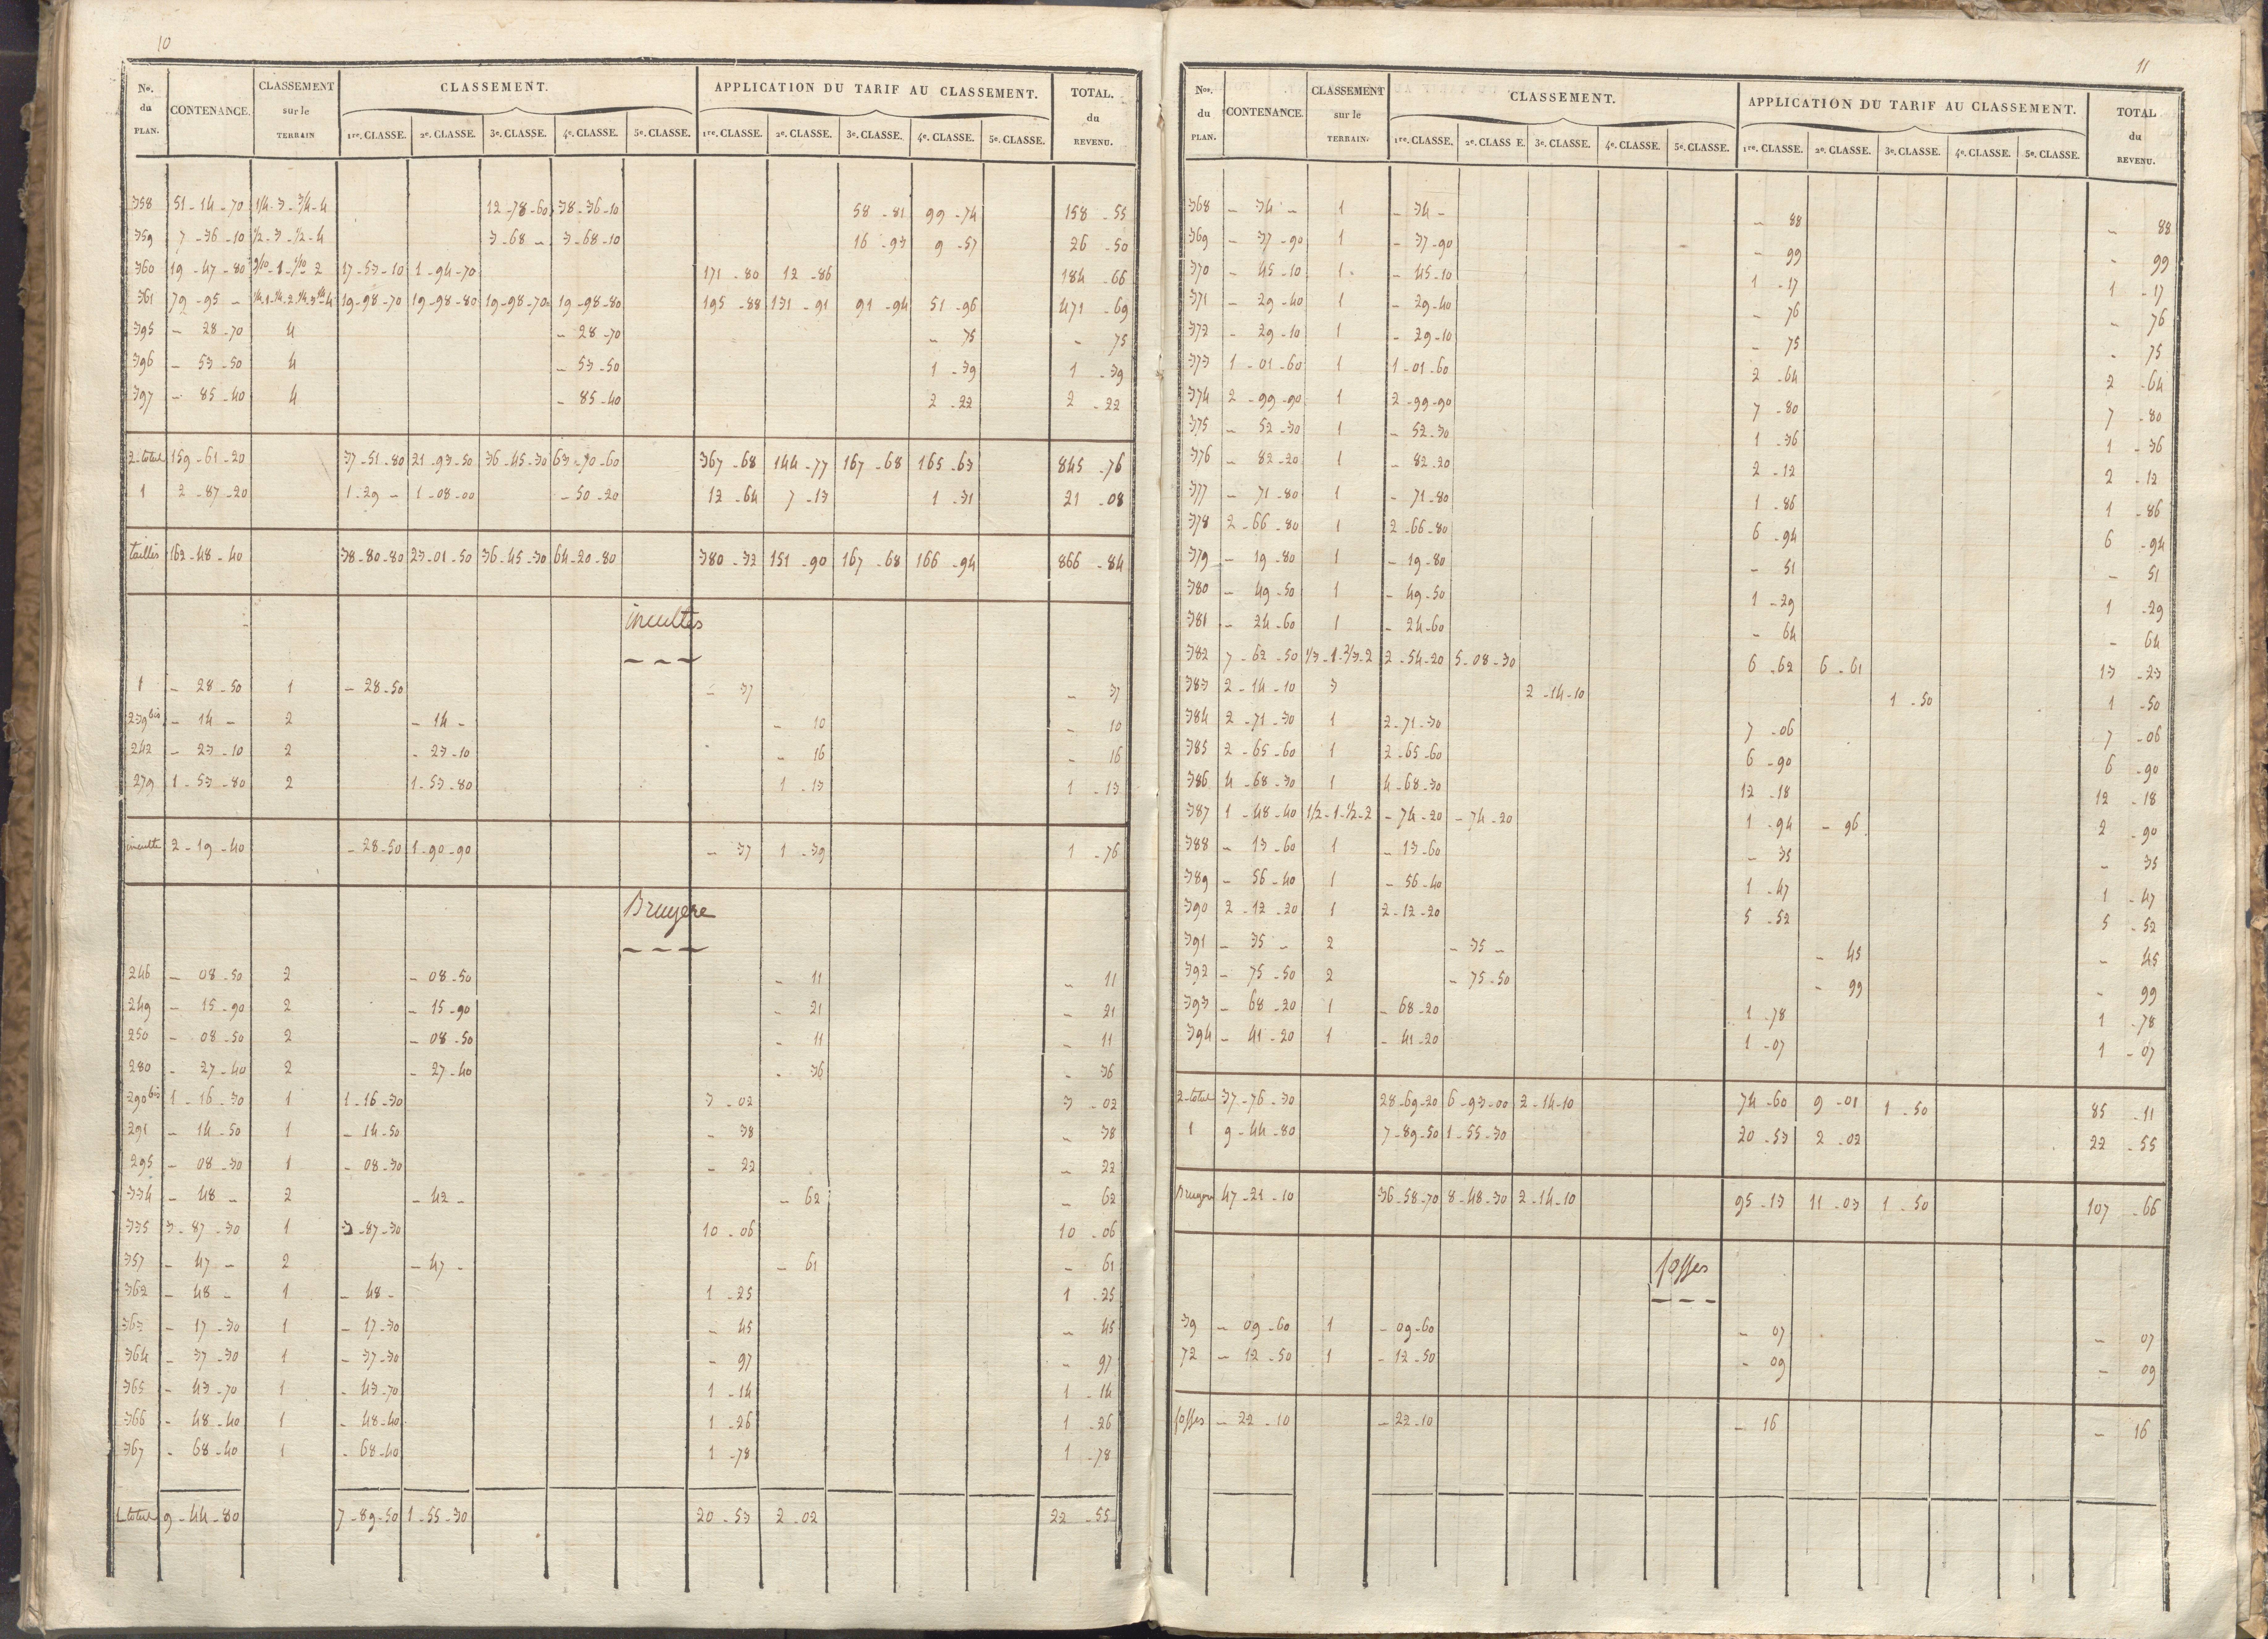 10
Nos. du PLAN. CONTENANCE. CLASSEMENT sur le TERRAIN CLASSEMENT. APPLICATION DU TARIF AU CLASSEMENT. TOTAL. du REVENU.
1re. CLASSE. 2e. CLASSE. 3e. CLASSE. 4e. CLASSE. 5e. CLASSE. 1re. CLASSE. 2e. CLASSE. 3e. CLASSE. 4e. CLASSE. 5e. CLASSE.
358 51-14-70 1/4-3-3/4-4 12-78-60 38-36-10 58-81 99-74 158-55
359 7-36-10 1/2-3-1/2-4 3-68- 3-68-10 16-93 9-57 26-50
360 19-47-80 9/10-1-1/10 2 17-53-10 1-94-70 171-80 12-86 184-66
361 79-95- 1/4.1-1/4.2.1/4.3 1/4.4 19-98-70 19-98-80 19-98-70 19-98-80 195-88 131-91 91-94 51-96 471-69
395 - 28-70 4 - 28-70 - 75 - 75
396 - 53-50 4 - 53-50 1-39 1-39
397 - 85-40 4 - 85-40 2-22 2-22
2-total 159-61-20 37-51-80 21-93-50 36-45-30 63-70-60 367-68 144-77 167-68 165-63 845-76
1 2-87-20 1-29- 1-08-00 - 50-20 12-64 7-13 1-31 21-08
taillis 162-48-40 38-80-80 23-01-50 36-45-30 64-20-80 380-32 151-90 167-68 166-94 866-84
incultes
1 - 28-50 1 - 28-50 - 37 - 37
239bis - 14- 2 - 14- - 10 - 10
242 - 23-10 2 - 23-10 - 16 - 16
279 1-53-80 2 1-53-80 1-13 1-13
inculte 2-19-40 - 28-50 1-90-90 - 37 1-39 1-76
Bruyere
246 - 08-50 2 - 08-50 - 11 - 11
249 - 15-90 2 - 15-90 - 21 - 21
250 - 08-50 2 - 08-50 - 11 - 11
280 - 27-40 2 - 27-40 - 36 - 36
290bis 1-16-30 1 1-16-30 3-02 3-02
291 - 14-50 1 - 14-50 - 38 - 38
295 - 08-30 1 - 08-30 - 22 - 22
334 - 48- 2 - 42- - 62 - 62
335 3-87-30 1 3-87-30 10-06 10-06
357 - 47- 2 - 47- - 61 - 61
362 - 48- 1 - 48- 1-25 1-25
363 - 17-30 1 - 17-30 - 45 - 45
364 - 37-30 1 - 37-30 - 97 - 97
365 - 43-70 1 - 43-70 1-14 1-14
366 - 48-40 1 - 48-40 1-26 1-26
367 - 68-40 1 - 68-40 1-78 1-78
1-total 9-44-80 7-89-50 1-55-30 20-53 2-02 22-55
11
Nos. du PLAN. CONTENANCE. CLASSEMENT sur le TERRAIN. CLASSEMENT. APPLICATION DU TARIF AU CLASSEMENT. TOTAL du REVENU.
1re. CLASSE. 2e. CLASS E. 3e. CLASSE. 4e. CLASSE. 5e. CLASSE. 1re. CLASSE. 2e. CLASSE. 3e. CLASSE. 4e. CLASSE. 5e. CLASSE.
368 - 34- 1 - 34- - 88 - 88
369 - 37-90 1 - 37-90 - 99 - 99
370 - 45-10 1 - 45-10 1-17 1-17
371 - 29-40 1 - 29-40 - 76 - 76
372 - 29-10 1 - 29-10 - 75 - 75
373 1-01-60 1 1-01-60 2-64 2-64
374 2-99-90 1 2-99-90 7-80 7-80
375 - 52-30 1 - 52-30 1-36 1-36
376 - 82-20 1 - 82-20 2-12 2-12
377 - 71-80 1 - 71-80 1-86 1-86
378 2-66-80 1 2-66-80 6-94 6-94
379 - 19-80 1 - 19-80 - 51 - 51
380 - 49-50 1 - 49-50 1-29 1-29
381 - 24-60 1 - 24-60 - 64 - 64
382 7-62-50 1/3-1-2/3-2 2-54-20 5-08-30 6-62 6-61 13-23
383 2-14-10 3 2-14-10 1-50 1-50
384 2-71-30 1 2-71-30 7-06 7-06
385 2-65-60 1 2-65-60 6-90 6-90
386 4-68-30 1 4-68-30 12-18 12-18
387 1-48-40 1/2-1-1/2-2 - 74-20 - 74-20 1-94 - 96 2-90
388 - 13-60 1 - 13-60 - 35 - 35
389 - 56-40 1 - 56-40 1-47 1-47
390 2-12-20 1 2-12-20 5-52 5-52
391 - 35- 2 - 35- - 45 - 45
392 - 75-50 2 - 75-50 - 99 - 99
393 - 68-20 1 - 68-20 1-78 1-78
394 - 41-20 1 - 41-20 1-07 1-07
2-total 37-76-30 28-69-20 6-93-00 2-14-10 74-60 9-01 1-50 85-11
1 9-44-80 7-89-50 1-55-30 20-53 2-02 22-55
Bruyere 47-21-10 36-58-70 8-48-30 2-14-10 95-13 11-03 1-50 107-66
fosses
39 - 09-60 1 - 09-60 - 07 - 07
72 - 12-50 1 - 12-50 - 09 - 09
fosses - 22-10 - 22-10 - 16 - 16